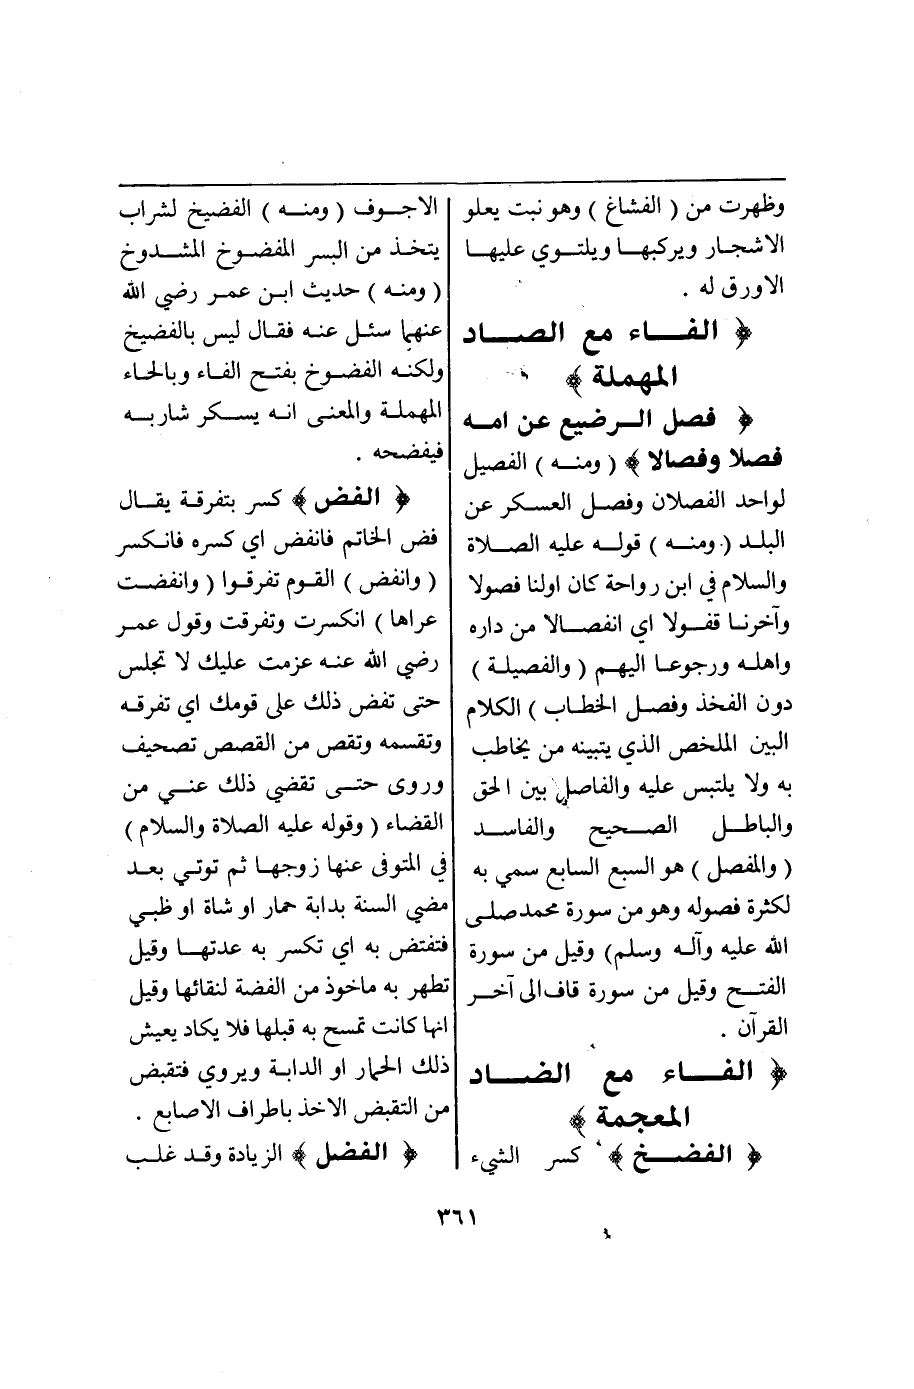 وظهرت من ( الفشاغ ) وهو نبت يعلو
الاشجار ويركبها ويلتوي عليها
الاورق له .
﴿ الفاء مع الصاد
المهملة ﴾
﴿ فصل الرضيع عن امه
فصلا وفصالا ﴾ ( ومنه ) الفصيل
لواحد الفصلان وفصل العسكر عن
البلد ( ومنه ) قوله عليه الصلاة
والسلام في ابن رواحة كان اولنا فصولا
وآخرنا قفولا اي انفصالا من داره
واهله ورجوعا اليهم ( والفصيلة )
دون الفخذ وفصل الخطاب ) الكلام
البين الملخص الذي يتبينه من يخاطب
به ولا يلتبس عليه والفاصل بين الحق
والباطل الصحيح والفاسد
( والمفصل ) هو السبع السابع سمي به
لكثرة فصوله وهو من سورة محمد صلى
الله عليه وآله وسلم) وقيل من سورة
الفتح وقيل من سورة قاف الى آخر
القرآن .
﴿ الفاء مع الضاد
المعجمة ﴾
﴿ الفضخ ﴾ كسر الشيء
الاجوف ( ومنه ) الفضيخ لشراب
يتخذ من البسر المفضوخ المشدوخ
( ومنه ) حديث ابن عمر رضي الله
عنهما سئل عنه فقال ليس بالفضيخ
ولكنه الفضوخ بفتح الفاء وبالحاء
المهملة والمعنى انه يسكر شاربه
فيفضحه .
﴿ الفض ﴾ كسر بتفرقة يقال
فض الخاتم فانفض اي كسره فانكسر
( وانفض ) القوم تفرقوا ( وانفضت
عراها ) انكسرت وتفرقت وقول عمر
رضي الله عنه عزمت عليك لا تجلس
حتى تفض ذلك على قومك اي تفرقه
وتقسمه وتقص من القصص تصحيف
وروى حتى تقضي ذلك عني من
القضاء ( وقوله عليه الصلاة والسلام )
في المتوفى عنها زوجها ثم توتي بعد
مضي السنة بدابة حمار او شاة او ظبي
فتفتض به اي تكسر به عدتها وقيل
تطهر به ماخوذ من الفضة لنقائها وقيل
انها كانت تمسح به قبلها فلا يكاد يعيش
ذلك الحمار او الدابة ويروي فتقبض
من التقبض الاخذ باطراف الاصابع .
﴿ الفضل ﴾ الزيادة وقد غلب
٣٦١